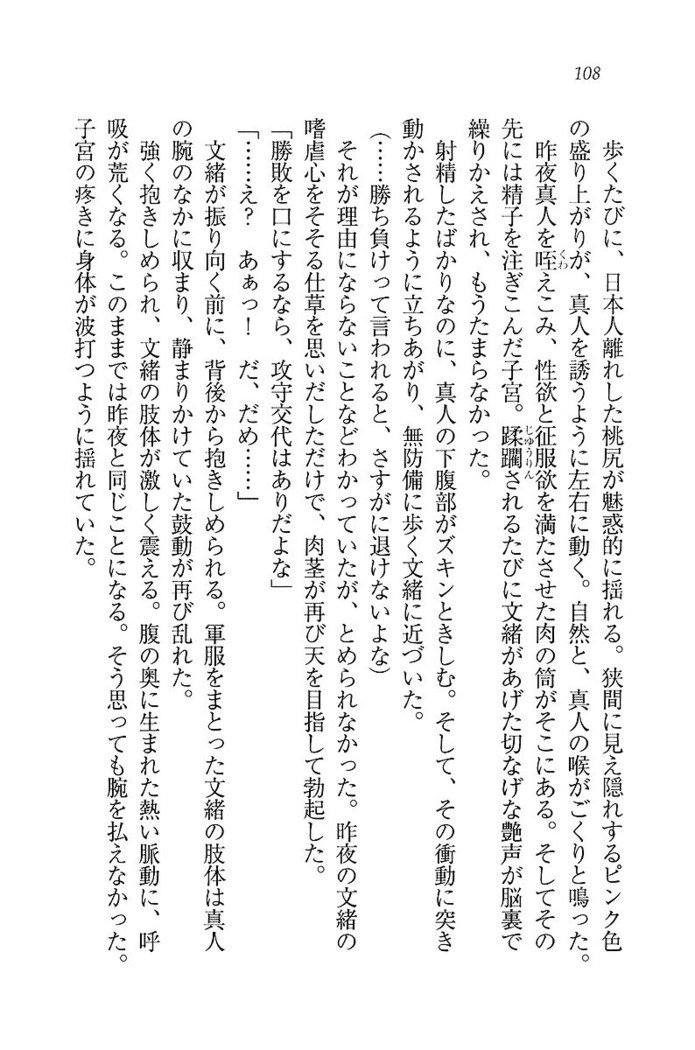 108
歩くたびに、日本人離れした桃尻が魅惑的に揺れる。狭間に見え隠れするピンク色
の盛り上がりが、真人を誘うように左右に動く。自然と、真人の喉がごくりと鳴った。
くわ
昨夜真人を咥えこみ、性欲と征服欲を満たさせた肉の筒がそこにある。そしてその
じゅうりん
先には精子を注ぎこんだ子宮。蹂躙されるたびに文緒があげた切なげな艶声が脳裏で
繰りかえされ、もうたまらなかった。
射精したばかりなのに、真人の下腹部がズキンときしむ。そして、その衝動に突き
動かされるように立ちあがり、無防備に歩く文緒に近づいた。
(……勝ち負けって言われると、さすがに退けないよな)
それが理由にならないことなどわかっていたが、とめられなかった。昨夜の文緒の
嗜虐心をそそる仕草を思いだしただけで、肉茎が再び天を目指して勃起した。
「勝敗を口にするなら、攻守交代はありだよな」
「……え? あぁっ! だ、だめ……」
文緒が振り向く前に、背後から抱きしめられる。軍服をまとった文緒の肢体は真人
の腕のなかに収まり、静まりかけていた鼓動が再び乱れた。
強く抱きしめられ、文緒の肢体が激しく震える。腹の奥に生まれた熱い脈動に、呼
吸が荒くなる。このままでは昨夜と同じことになる。そう思っても腕を払えなかった。
子宮の疼きに身体が波打つように揺れていた。